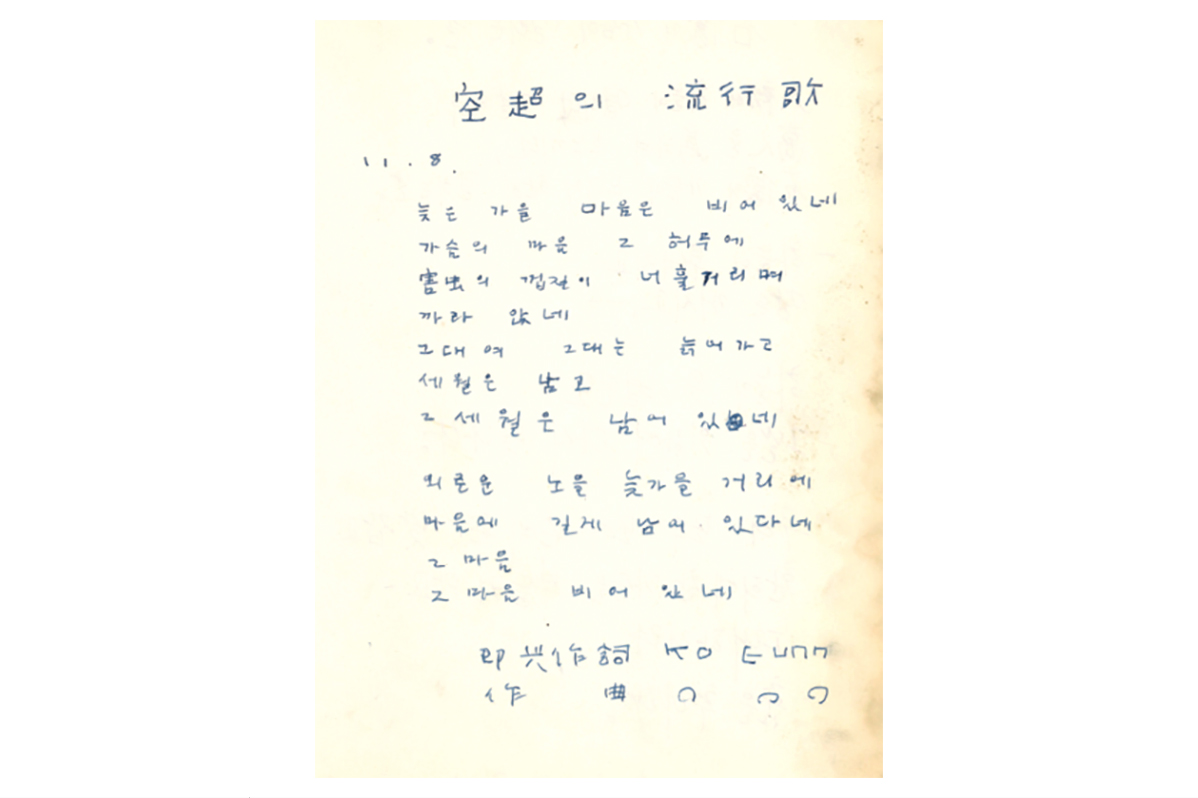 空超의 流行歌
11.8.
늦은 가을 마음은 비어 있네
가슴의 마음 그 허무에
害虫의 껍질이 너훌거리며
까라 앉네
그대여 그대는 늙어가고
세월은 남고
그 세월은 남어 있네
외로운 노을 늦가을 거리에
마음에 길게 남어 있다네
그 마음
그 마음 비어 있네
即興作詞 KO EUNN
作曲